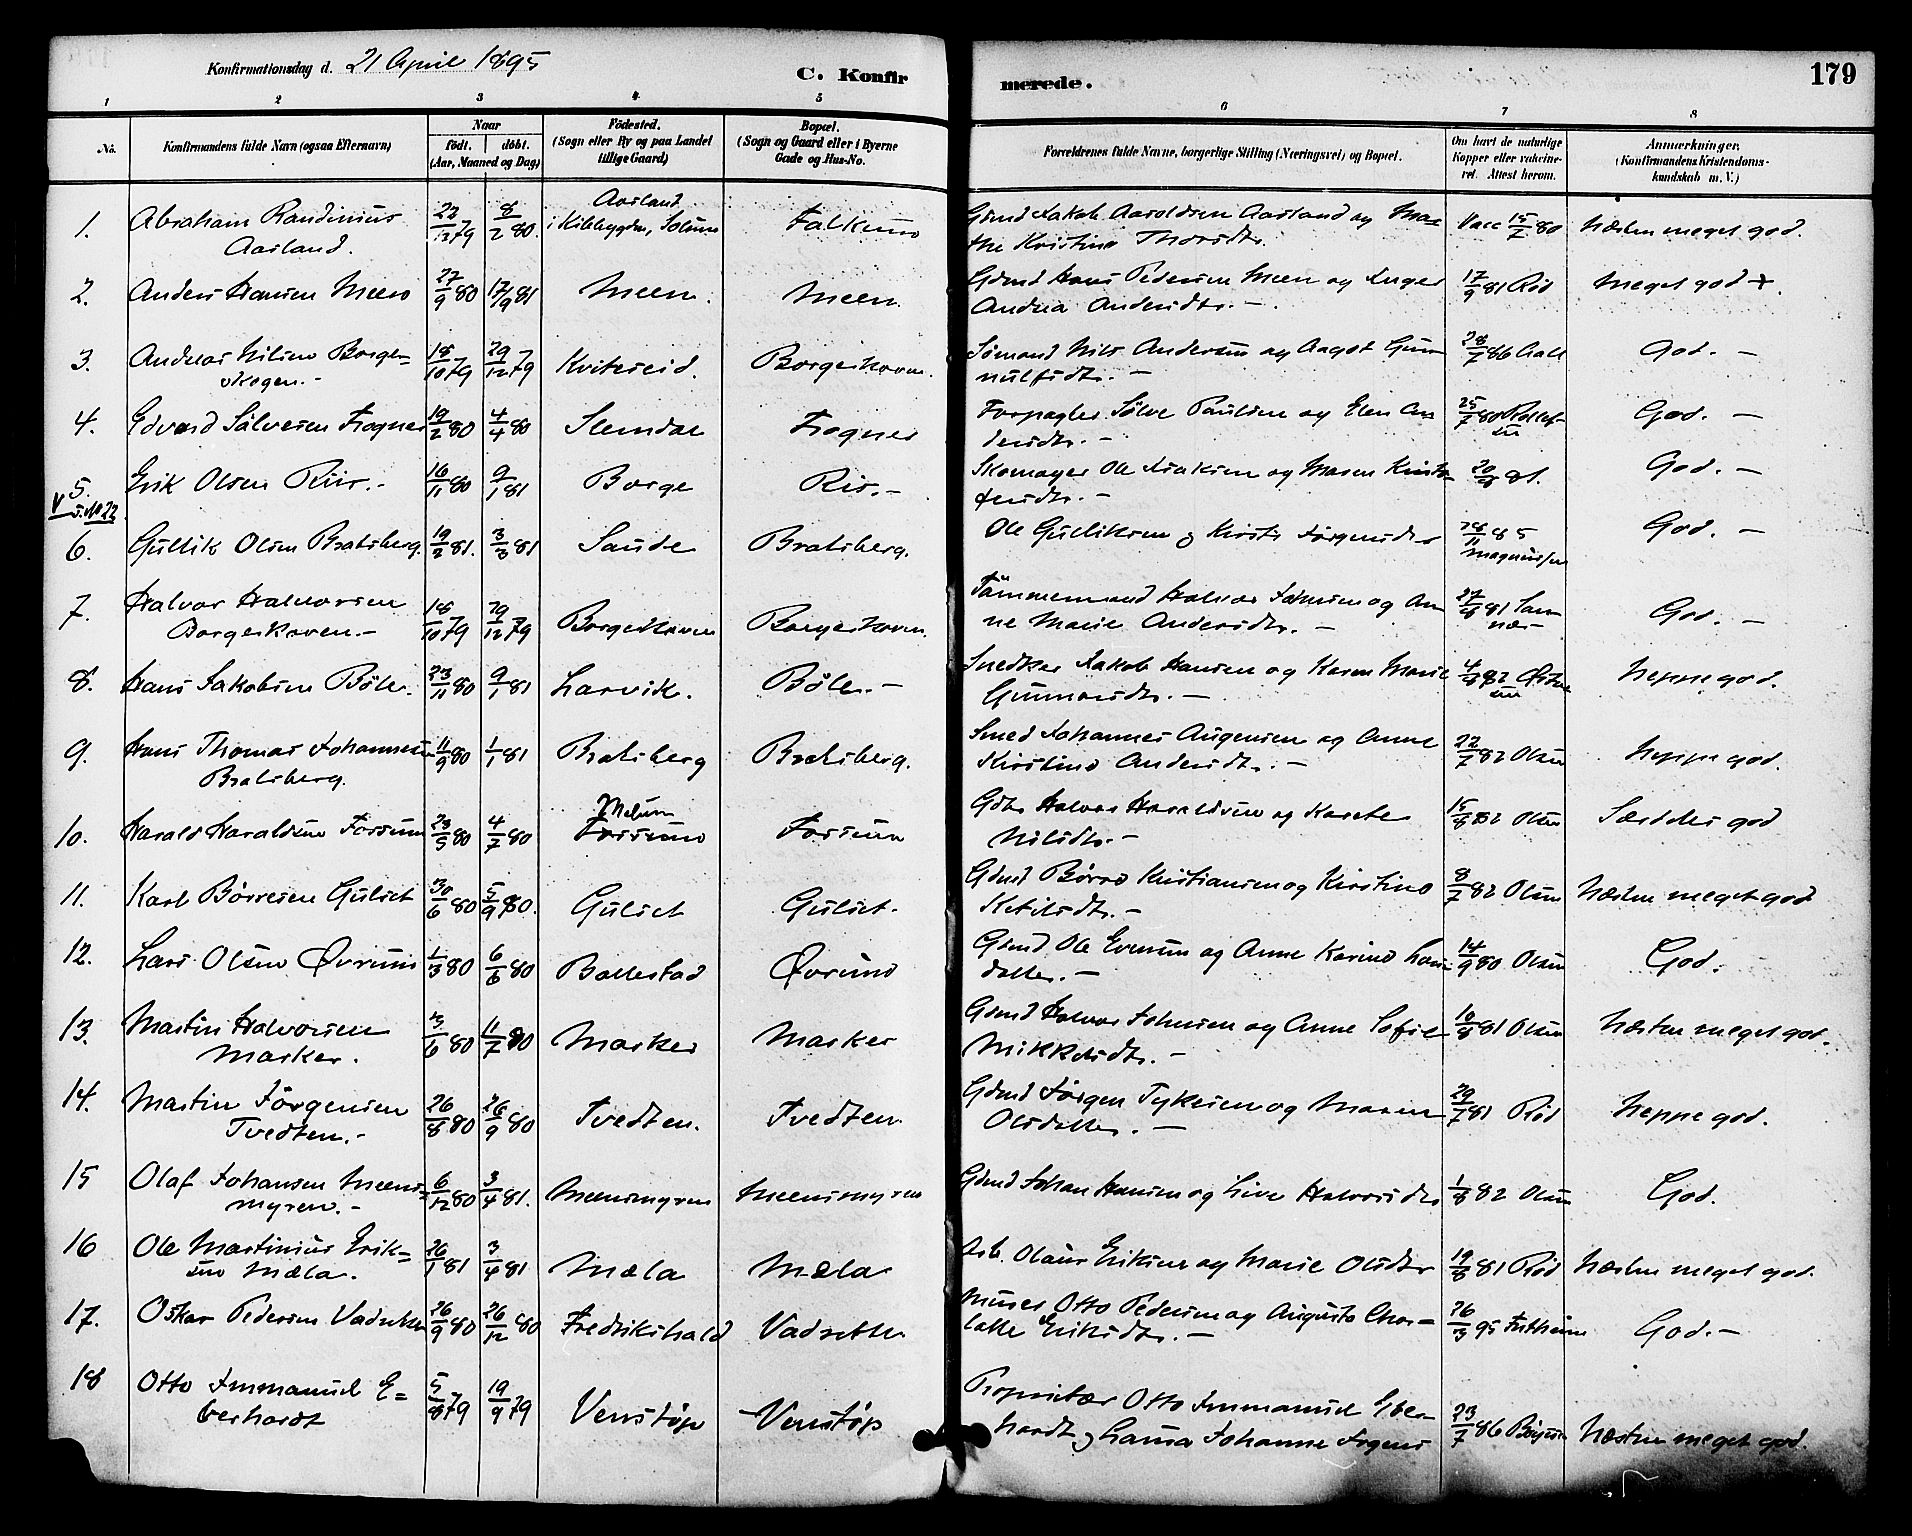 Konfirmationsdag d. 21 April 1895
C. Konfirmerede.
179
1 2 3 4 5 6 7 8
No. Konfirmandens fulde Navn (ogsaa Efternavn) Naar født. døbt. (Aar, Maaned og Dag) Fødested. (Sogn eller By og paa Landet tillige Gaard) Bopæl. (Sogn og Gaard eller i Byerne Gade og Hus-No. Forældrenes fulde Navne, borgerlige Stilling (Næringsvei) og Bopæl. Om havt de naturlige Kopper eller vaccineret. Attest herom. Anmærkninger. (Konfirmandens Kristendomskundskab m. V.)
1. Abraham Randinius Aasland. 22/12 79 8/2 80. Aasland i Kilebygden, Solum Falkum Gmd Jakob Aaroldsen Aasland og Marthe Kristine Thorsdtr. Vacc 15/7 80 Næsten meget god.
2. Anders Hansen Meen 27/9 80 17/9 81 Meen. Meen. Gdmd Hans Pedersen Meen og Inger Andrea Andersdtr. – 17/9 81 Rød Meget god +.
3. Andreas Nilsen Borgeskogen. – 18/10 79 29/12 79 Kviteseid. Borgeskoven. Sømand Nils Andersen og Aagot Gunnulfsdtr. – 28/7 86 Aall God. –
4. Edvard Sølvesen Frogner 19/2 80 4/4 80 Slemdal Frogner Forpagter Sølve Paulsen og Elen Andersdtr. – 25/7 80 God. –
5. Erik Olsen Riis. – 16/11 80 9/1 81 Borge Ris. – Skomager Ole Isaksen og Maren Kristofersdtr. – 20/8 81. God. –
V s. No 22
6. Gullik Olsen Bratsberg. 19/2 81. 3/3 81 Saude Bratsberg. Ole Gulliksen og Kirsti Jørgensdtr 28/11 85 Magnussen God. –
7. Halvor Halvorsen Borgeskoven. – 18/10 79 29/12 79 Borgeskoven Borgeskoven. Tømmermand Halvor Johnsen og Anne Marie Andersdtr. – 27/8 81 God. –
8. Hans Jakobsen Bøle. 23/11 80 9/1 81 Larvik. Bøle. – Snedker Jakob Hansen og Karen Marie Gunnarsdtr. – 4/8 82 Neppe god.
9. Hans Thomas Johannesen Bratsberg. 11/9 80 1/1 81 Bratsberg Bratsberg. Smed Johannes Augensen og Anne Kirstine Andersdtr. – 22/7 82 Olsen Neppe god.
10. Harald Haraldsen Fossum 23/5 80 4/7 80 Melum Fossum Fossum Gdbr Halvor Haraldsen og Karete Nilsdtr. – 15/8 82 Olsen Særdeles god
11. Karl Børresen Gulset 30/6 80 5/9 80. Gulset Gulset. Gdmd Børre Kristiansen og Kirstine Ketilsdtr. – 8/7 82 Olsen Næsten meget god
12. Lars Olsen Øvrum 1/3 80 6/6 80 Ballestad Øvrum Gdmd Ole Evensen og Anne Karine Larsdatter. – 14/9 80 Olsen God.
13. Martin Halvorsen Marker. 3/6 80 11/7 80 Marker Marker Gdmd Halvor Johnsen og Anne Sofie Mikkelsdtr. – 10/8 81 Olsen Næsten meget god.
14. Martin Jørgensen Tvedten. – 26/8 80 26/9 80 Tvedten. Tvedten. Gdmd Jørgen Tykesen og Maren Olsdatter. – 29/7 81 Rød Neppe god.
15 Olaf Johansen Meensmyren. – 6/12 80 3/4 81. Meensmyren Meensmyren Gdmd Johan Hansen og Live Halvorsdtr 1/8 82 Olsen God.
16 Ole Martinius Eriksen Mæla. 26/1 81 3/4 81 Mæla Mæla Arb. Olaus Eriksen og Marie Olsdtr 19/8 81 Rød Næsten meget god.
17. Oskar Pedersen Vadrette 26/9 80 26/12 80 Fredrikshald Vadrette Murer Otto Pedersen og Augusta Charlotte Eriksdtr. – 26/3 95 God. –
18 Otto Immanuel Eberhardt 5/8 79 19/9 79 Venstøp Venstøp Proprietær Otto Immanuel Eberhardt og Laura Johanne Irgens 23/7 86 Næsten meget god.